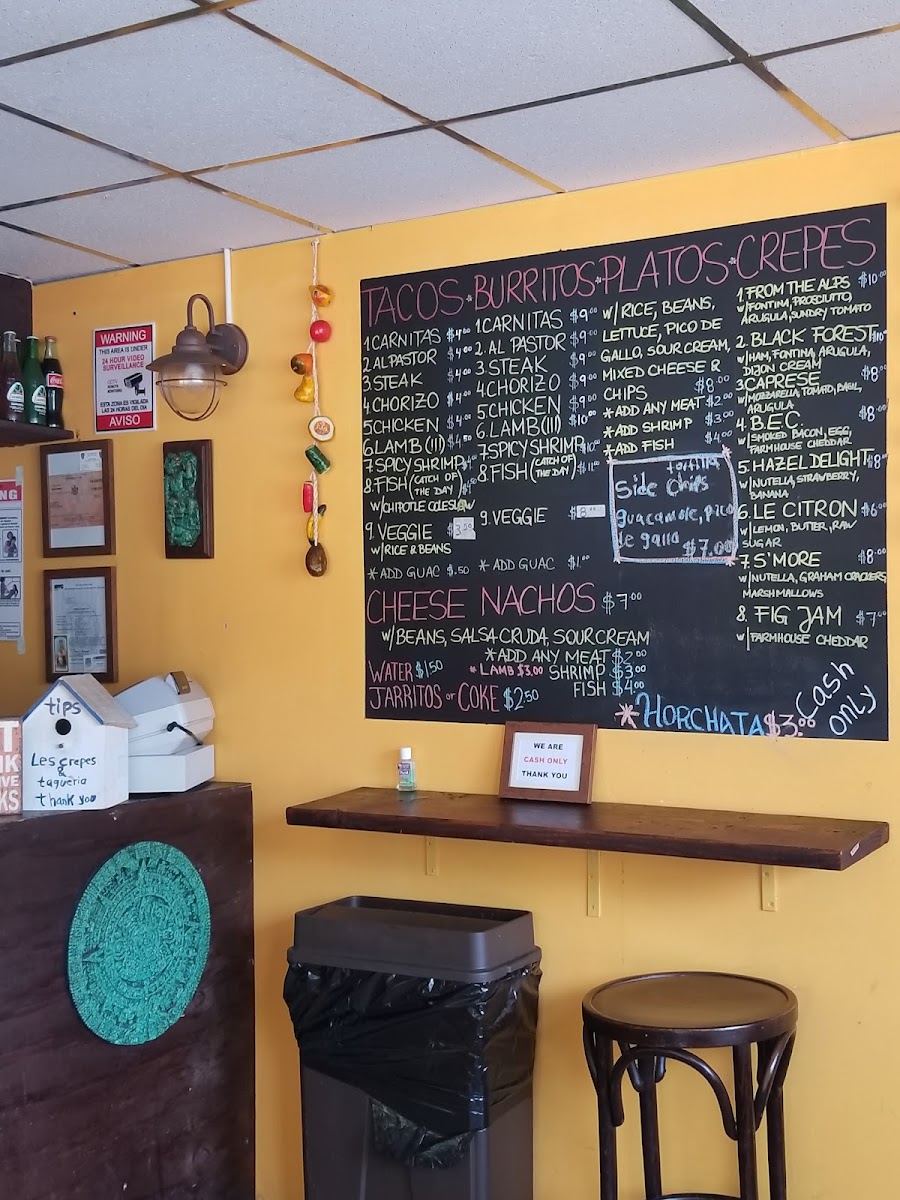 TACOS * BURRITOS * PLATOS * CREPES
1 CARNITAS $4.00
2 AL PASTOR $4.00
3 STEAK $4.00
4 CHORIZO $4.00
5 CHICKEN $4.00
6 LAMB (III) $4.50
7 SPICY SHRIMP
8. FISH (CATCH OF THE DAY)
W/CHIPOTLE COLESLAW
9. VEGGIE $3.50
W/RICE & BEANS
* ADD GUAC $.50
1 CARNITAS $9.00
2. AL PASTOR $9.00
3 STEAK $9.00
4 CHORIZO $9.00
5 CHICKEN $9.00
6. LAMB (III) $10.00
7 SPICY SHRIMP
8. FISH (CATCH OF THE DAY) $11.00
9. VEGGIE $8.00
* ADD GUAC $1.00
W/ RICE, BEANS,
LETTUCE, PICO DE
GALLO, SOUR CREAM,
MIXED CHEESE &
CHIPS $8.00
* ADD ANY MEAT $2.00
* ADD SHRIMP $3.00
* ADD FISH $4.00
tortilla
Side Chips
guacamole, pico
de gallo $7.00
1. FROM THE ALPS $10.00
W/FONTINA, PROSCIUTTO,
ARUGULA, SUNDRY TOMATO
2. BLACK FOREST $10.00
W/HAM, FONTINA, ARUGULA,
DIJON CREAM
3 CAPRESE $8.00
W/MOZZARELLA, TOMATO, BASIL,
ARUGULA
4. B.E.C. $8.00
W/ SMOKED BACON, EGG,
FARMHOUSE CHEDDAR
5. HAZEL DELIGHT $8.00
W/NUTELLA, STRAWBERRY,
BANANA
6 LE CITRON $6.00
W/LEMON, BUTTER, RAW
SUGAR
7. S'MORE $8.00
W/NUTELLA, GRAHAM CRACKERS,
MARSHMALLOWS
8. FIG JAM $7.00
W/FARMHOUSE CHEDDAR
CHEESE NACHOS $7.00
W/BEANS, SALSA CRUDA, SOUR CREAM
* ADD ANY MEAT $2.00
* LAMB $3.00 SHRIMP $3.00
FISH $4.00
WATER $1.50
JARRITOS or COKE $2.50
* HORCHATA $3.00
Cash
only
WARNING
THIS AREA IS UNDER
24 HOUR VIDEO
SURVEILLANCE
ESTA ZONA ES VIGILADA
LAS 24 HORAS DEL DIA
AVISO
WE ARE
CASH ONLY
THANK YOU
tips
Les crepes
&
taqueria
thank you